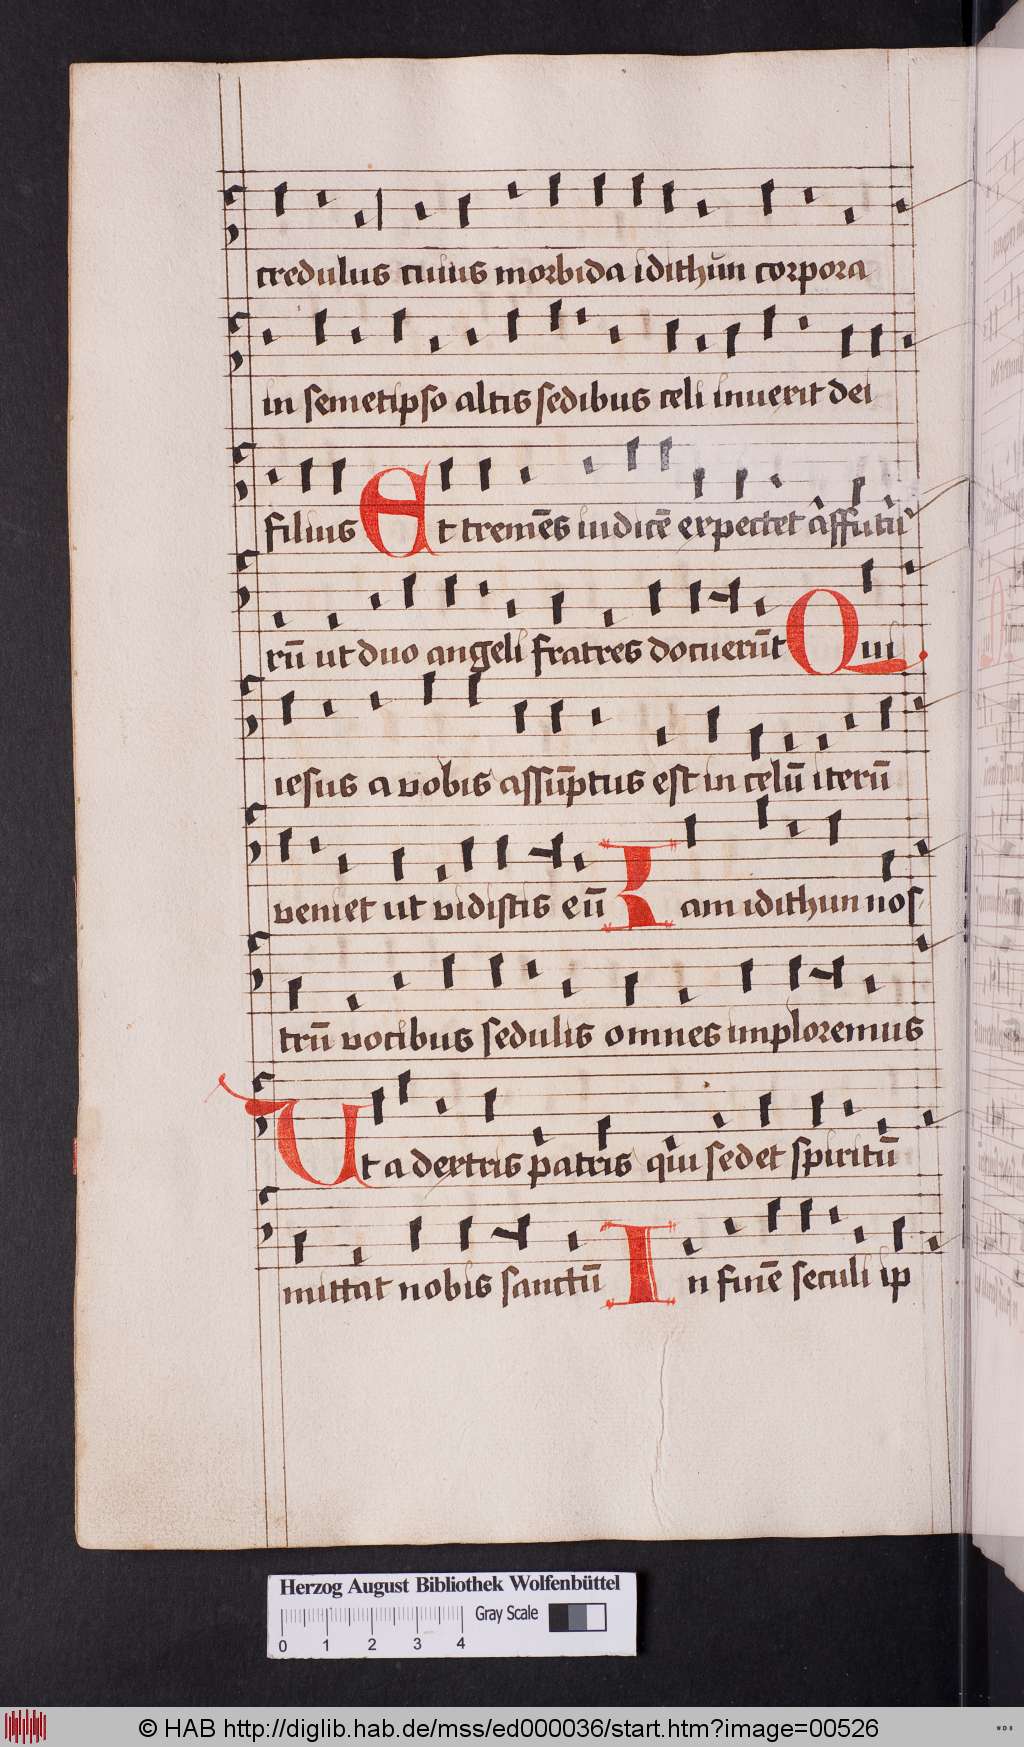 credulus cuius morbida idithun corpora
in semetipso altis sedibus celi inuexit dei
filius Et tremēs iudicē expectet affutu
rū ut duo angeli fratres docuerūt Qui
iesus a vobis assūptus est in celū iterū
veniet ut vidistis eū Iam idithun nos
trū vocibus sedulis omnes imploremus
Ut a dextris patris qui sedet spiritū
mittat nobis sanctū In finē seculi ip
Herzog August Bibliothek Wolfenbüttel
Gray Scale
0 1 2 3 4
© HAB http://diglib.hab.de/mss/ed000036/start.htm?image=00526